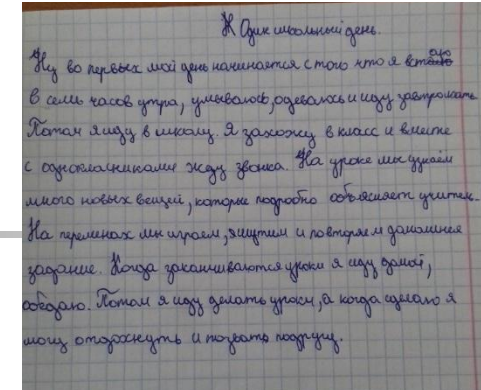 Один школьный день.
Ну во первых мой день начинается с того что я встаю
в семь часов утра, умываюсь, одеваюсь и иду завтракать
Потом я иду в школу. Я захожу в класс и вместе
с однокласниками жду звонка. На уроке мы узнаём
много новых вещей, которые подробно объясняет учитель.
На переменах мы играем, шутим и повторяем домашнее
задание. Когда заканчиваются уроки я иду домой,
обедаю. Потом я иду делать уроки, а когда сделаю я
могу отдохнуть и позвать подругу.